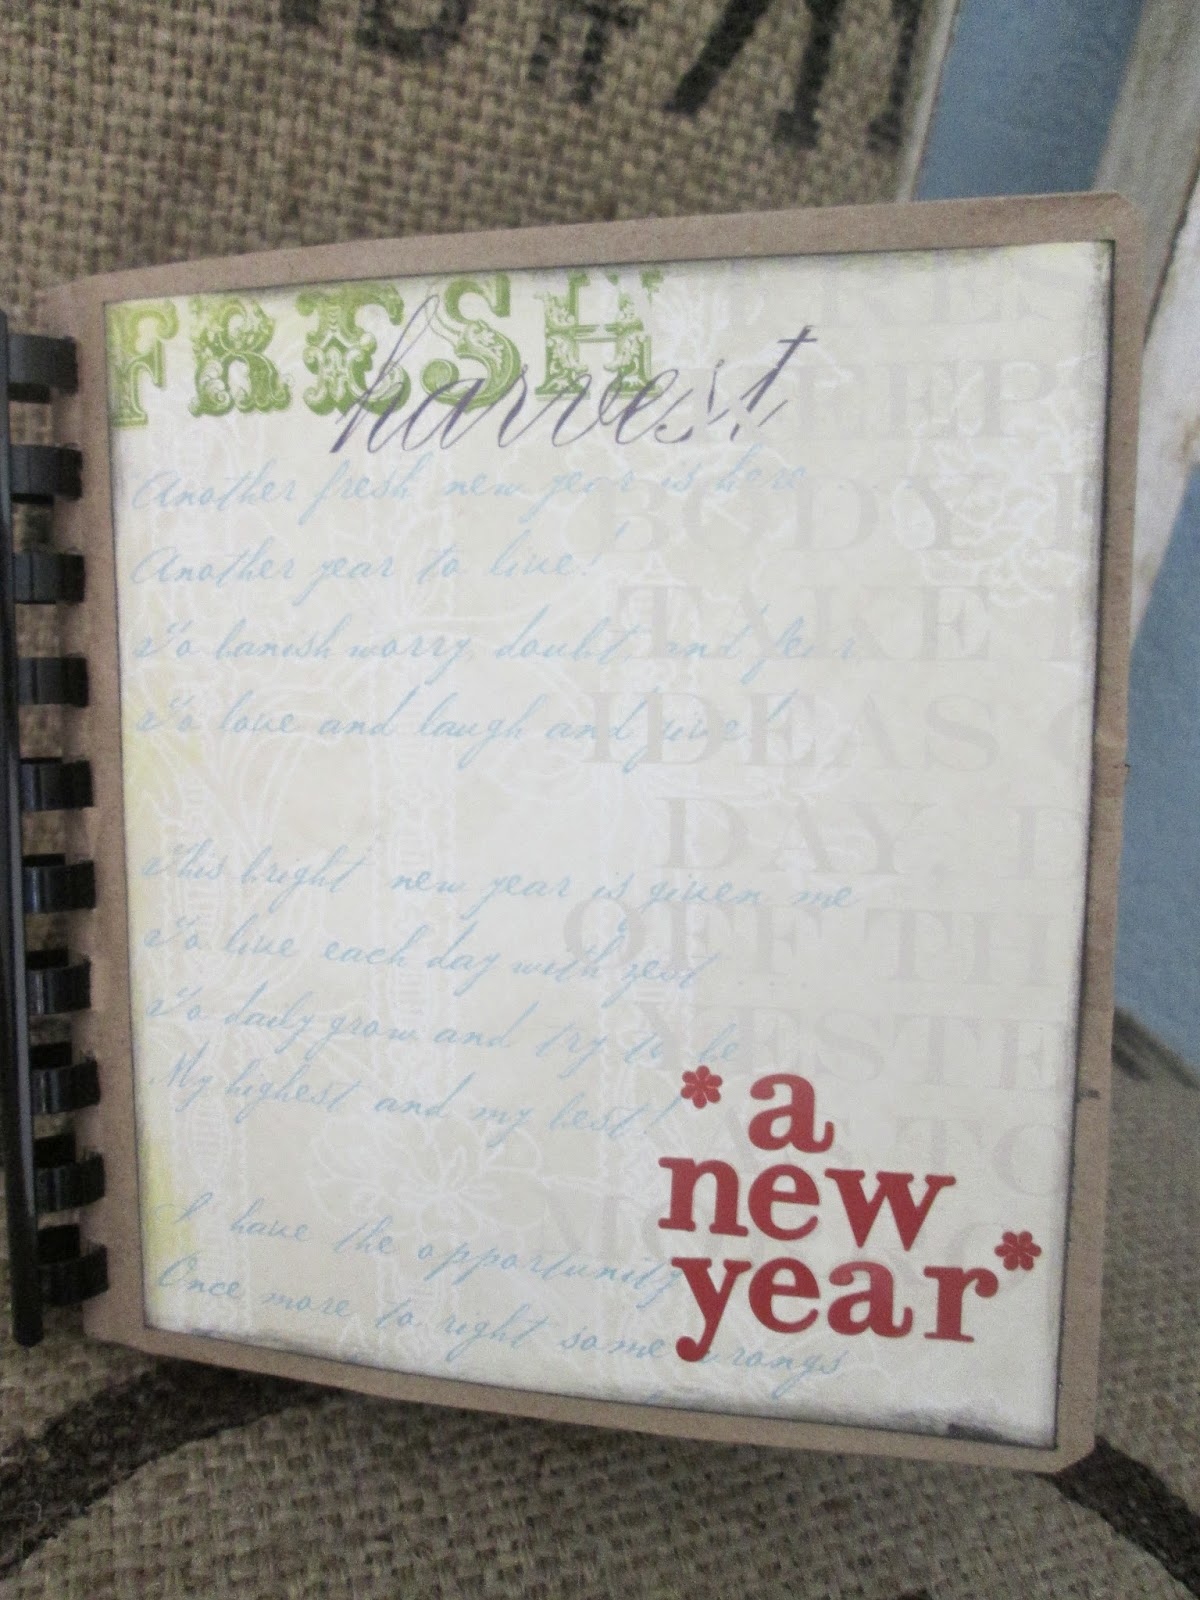 FRESH
harvest
Another fresh new year is here . . .
Another year to live!
To banish worry, doubt, and fear,
To love and laugh and give!
This bright new year is given me
To live each day with zest
To daily grow and try to be
My highest and my best!
I have the opportunity
Once more to right some wrongs
*a
new
year*
FRES
KEEPS
BODY
TAKE
IDEAS
DAY.
OFF TH
YESTE
AS TO